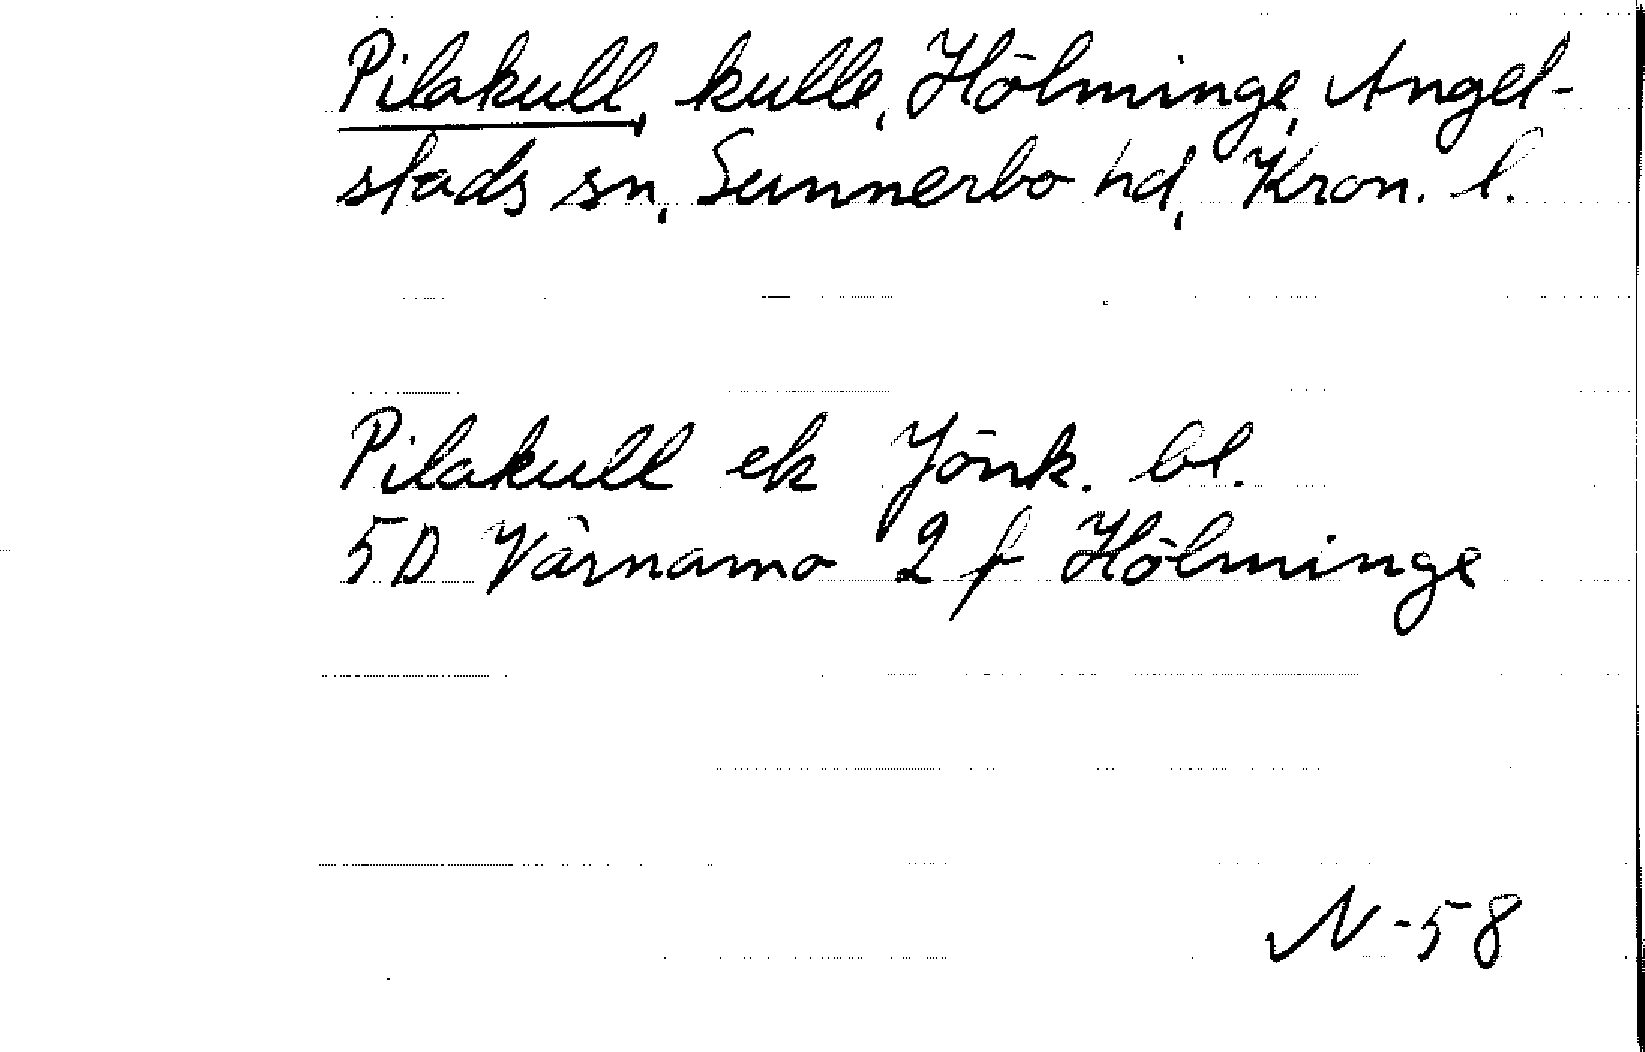 Pilakull, kulle, Hölminge, Angel-
stads sn, Sunnerbo hd, Kron. l.
Pilakull ek Jönk. bl.
5D Värnamo 2 f Hölminge
N-58